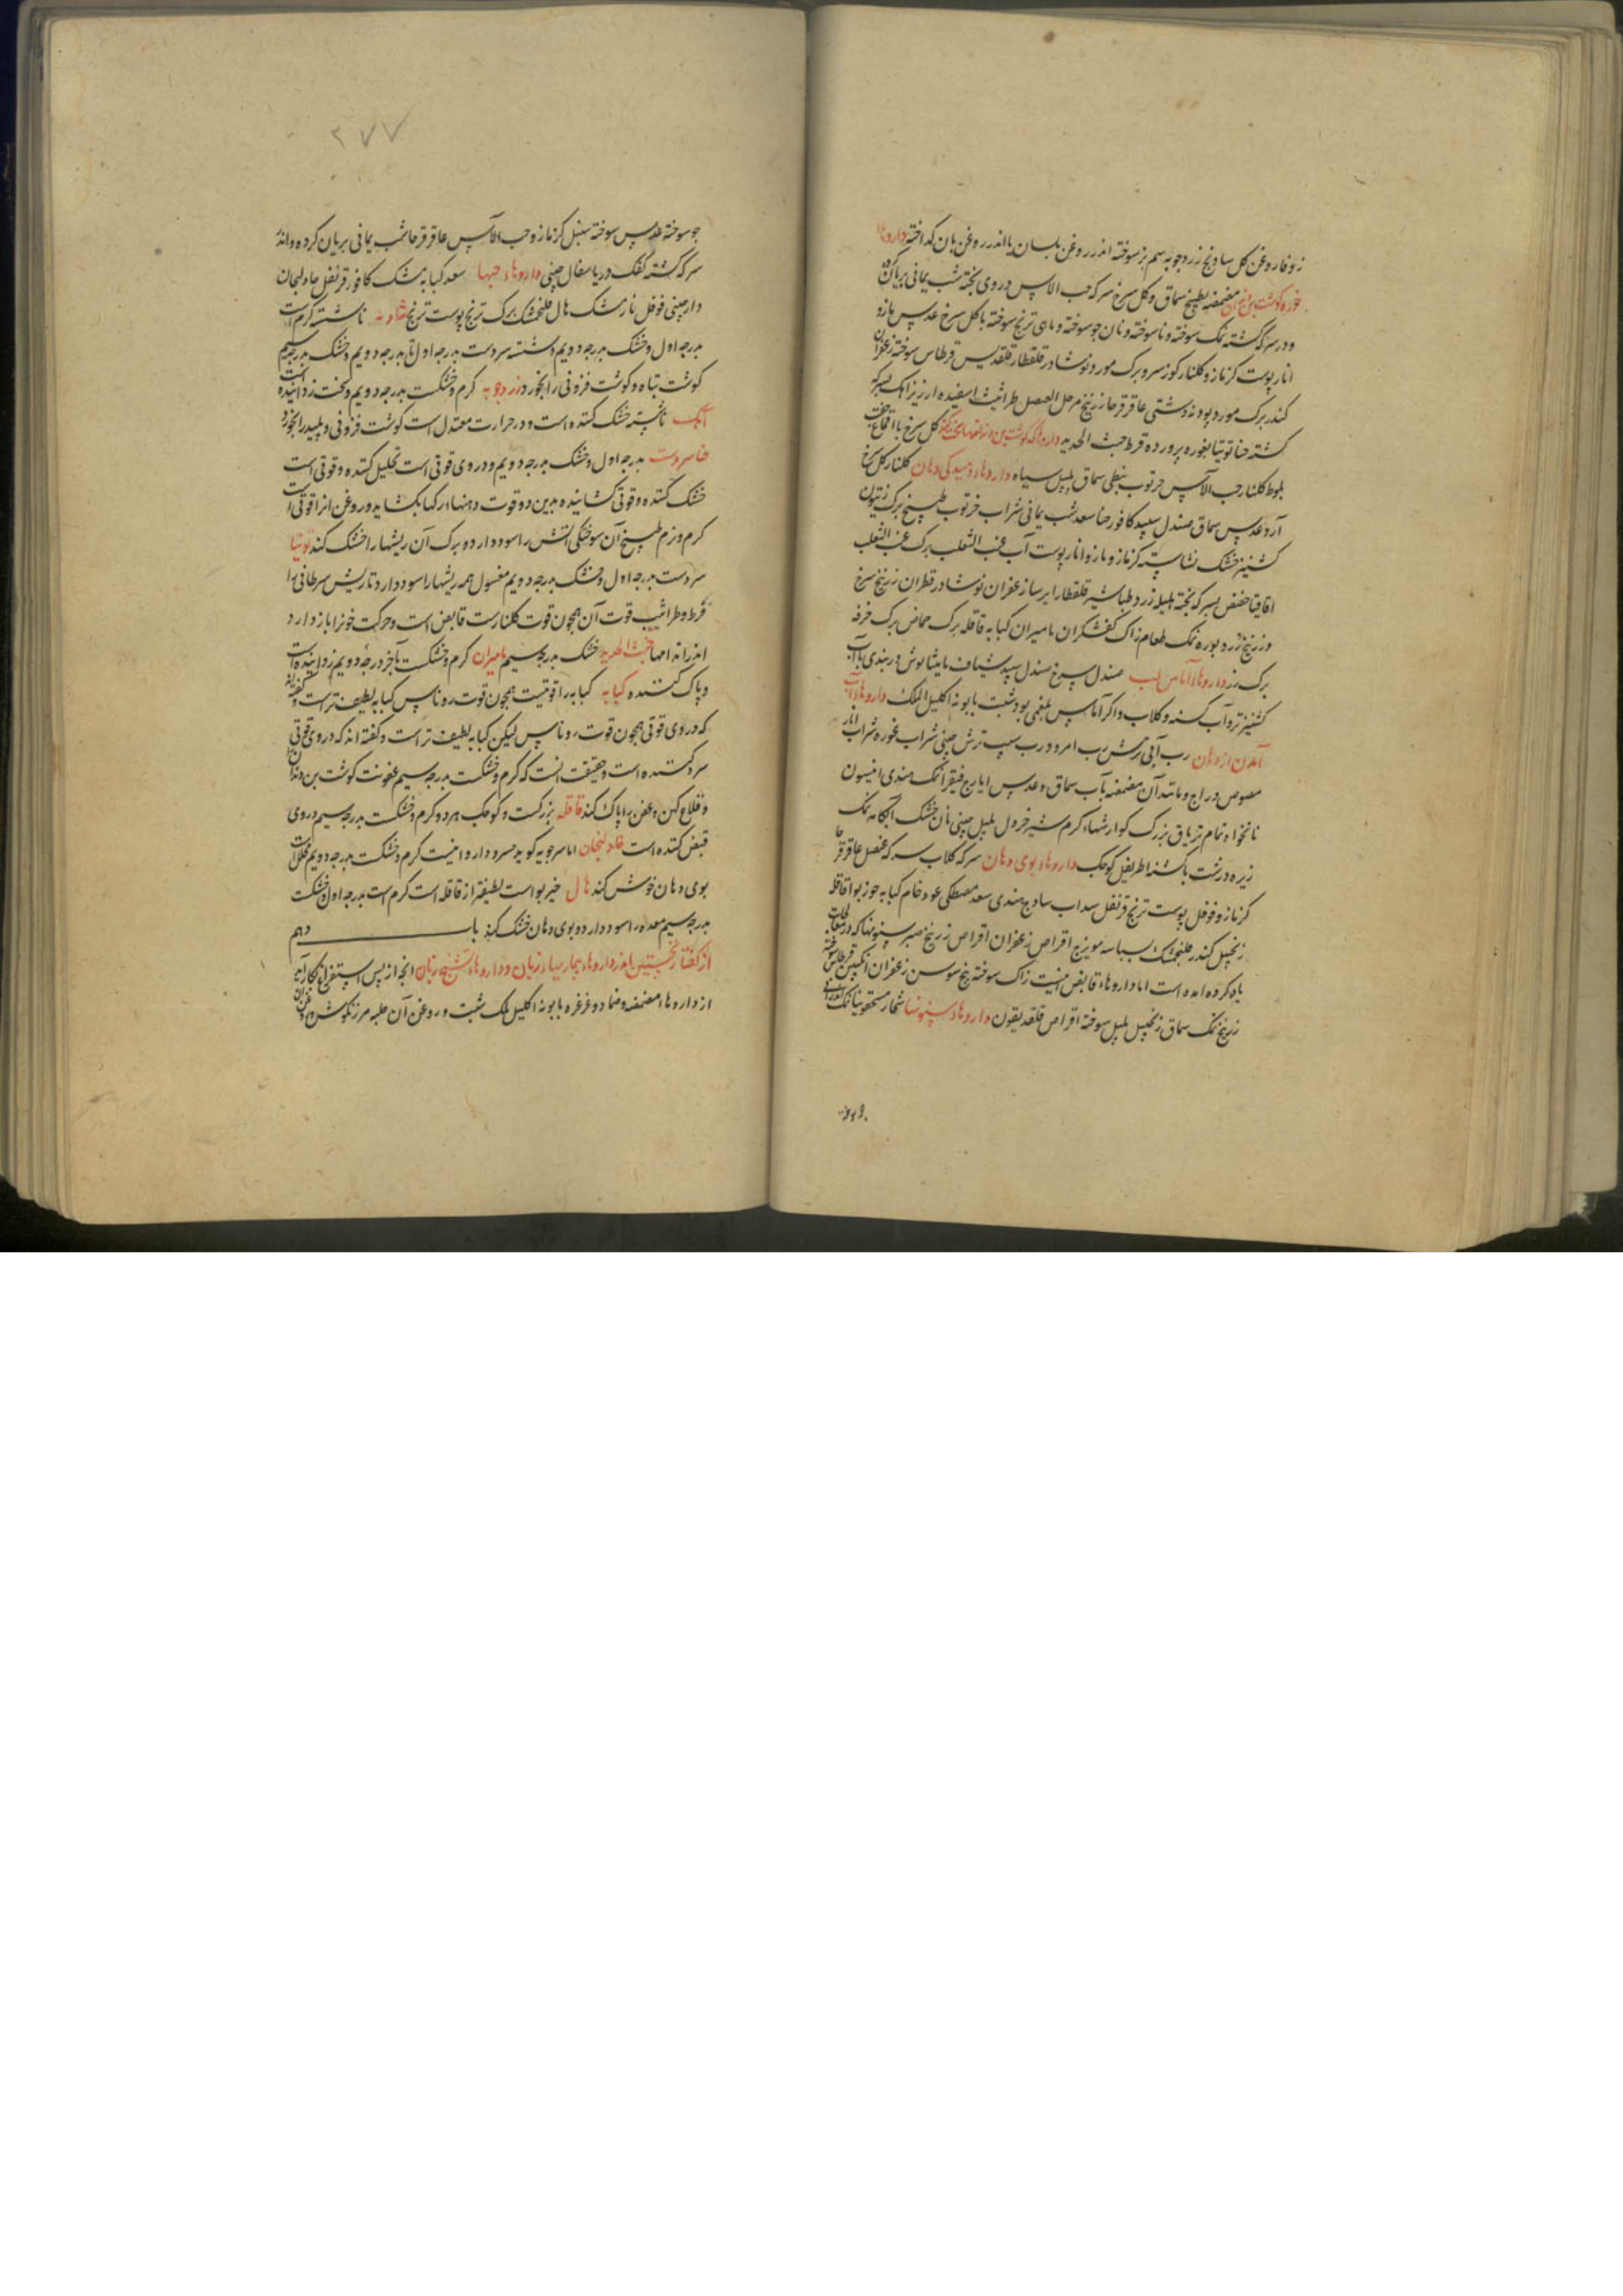 زوفا روغن کل ساذنج زردجوبه سم بز سوخته اندر روغن بلسان یا اندر روغن بان کداخته داروهاء
خوره کوشت بن دندان مضمضه بطبیخ سماق و کل سرخ سرکه حب الاس دروی بخته شب یمانی بریان کرده
و در سرکه کشته نمک سوخته و ناسوخته و نان جو سوخته و ماهی ترنج سوخته با کل سرخ عدس مازو
انار پوست کزمازو کلنار کوز سرو برک مورد نوشادر قلقطار قلقدیس قرطاس سوخته زعفران
کندر برک مورد پودنه دشتی عاقرقرحا زرنیخ مرحل العنصل طراثیث اسفیده ارزیز اهک بسرکه
کشته حنا توتیا بغوره پرورده قرط خبث الحدید داروها که کوشت بن دندانها سخت کند کل سرخ با اقماع جفت
بلوط کلنار حب الآس خرنوب نبطی سماق پلپل سیاه داروهاء دمیدکی دهان کلنار کل سرخ
آرد عدس سماق صندل سپید کافور حنا سعد شب یمانی شراب خرنوب طبیخ برک زیتون
کشنیز خشک نشاسته کزمازو مازو انار پوست آب عنب الثعلب برک عنب الثعلب
اقاقیا حضض بسرکه بخته هلیله زرد طباشیر قلقطار ایرسا زعفران نوشادر قطران زرنیخ سرخ
و زرنیخ زرد بوره نمک طعام زاک کفشکران مامیران کبابه قاقله برک حماض برک خرفه
برک رز داروهاء آماس لب صندل سرخ صندل سپید شیاف مامیثا بوش دربندی با آب
کشنیز تر و آب کسنه و کلاب و اکر آماس بلغمی بود شبت بابونه اکلیل الملک داروهاء آب
آمدن از دهان رب آبی ترش رب امرود رب سیب ترش چینی شراب غوره شراب انار
مصوص دراج و مانند آن مضمضه بآب سماق و عدس ایارج فیقرا نمک هندی انیسون
نانخواه تمام تریاق بزرک کوارشهاء کرم شیر خردل پلپل چینی نان خشک آبکامه نمک
زیره درشت ناشتا اطریفل کوچک داروهاء بوی دهان سرکه کلاب سرکه عنصل عاقرقرحا
کزمازو فوفل پوست ترنج قرنفل سداب ساذج هندی سعد مصطکی عود خام کبابه جوز بوا قاقله
زنجبیل کندر فلنجمشک بسباسه مویزج اقراص زعفران اقراص زرنیخ صبر سنونها که در معالجات
یاد کرده امده است اما داروهاء قابض اینست زاک سوخته بیخ سوسن زعفران انکبین قرطاس سوخته
زرنیخ نمک سماق زنجبیل پلپل سوخته اقراص قلقدیقون داروهاء سنونها شخار سحقونیا نمک اندرانی
۲۷۷
جو سوخته عدس سوخته سنبل کزمازو حب الآس عاقرقرحا شب یمانی بریان کرده و اندر
سرکه کشته کفک دریا سفال چینی داروهاء حبها سعد کبابه مشک کافور قرنفل خاولنجان
دارچینی فوفل نارمشک هال فلنجمشک برک ترنج پوست ترنج شادنه ناشسته کرم است
بدرجه اول و خشک بدرجه دویم و شسته سردست بدرجه اول تا بدرجه دویم و خشک بدرجه سیم
کوشت تباه و کوشت فزونی را بخورد زردجوبه کرم و خشکست بدرجه دویم و لخت زداینده است
آهک ناشسته خشک کننده است و در حرارت معتدل است کوشت فزونی و پلید را بخورد
حنا سردست بدرجه اول و خشک بدرجه دویم و در وی قوتی است تحلیل کننده و قوتی است
خشک کننده و قوتی کشاینده بدین دو قوت دهنهاء رکها بکشاید و روغن انرا قوتی است
کرم و نرم طبیخ آن سوختکی آتش را سود دارد و برک آن ریشها را خشک کند توتیا
سردست بدرجه اول و خشک بدرجه دویم مغسول همه ریشها را سود دارد تا ریش سرطانی را
قرط و طراثیث قوت آن همچون قوت کلنارست قابض است و حرکت خونرا باز دارد
اندر اندامها خبث الحدید خشک بدرجه سیم مامیران کرم و خشکست تا بآخر درجه دویم زداینده است
و پاک کننده کبابه کبابه را قوتیست همچون قوت روناس کبابه لطیف تر است و کفته اند
که در وی قوتی همچون قوت روناس لیکن کبابه لطیف تر است و کفته اند که در وی قوتی
سرد کننده است و حقیقت انست که کرم و خشکست بدرجه سیم عفونت کوشت بن دندان را
و قلاع کهن و عفن را پاک کند قاقله بزرکست و کوجک هر دو کرم و خشکست بدرجه سیم در وی
قبض کننده است خاولنجان اما سرجویه کوید خسرودارو اینست کرم و خشکست بدرجه دویم محلل است
بوی دهان خوش کند هال خیربو است لطیفتر از قاقله است کرم است بدرجه اول و خشکست
بدرجه سیم معده را سود دارد و بوی دهان خشک کند باب دهم
از کفتار نخستین اندر داروهاء بیماریهاء زبان و داروهاء تشنج زبان انجه از پس استفراغ بکار آید
از داروهاء مضمضه و ضماد و غرغره بابونه اکلیل الملک شبت و روغن آن حلبه مرزنکوش